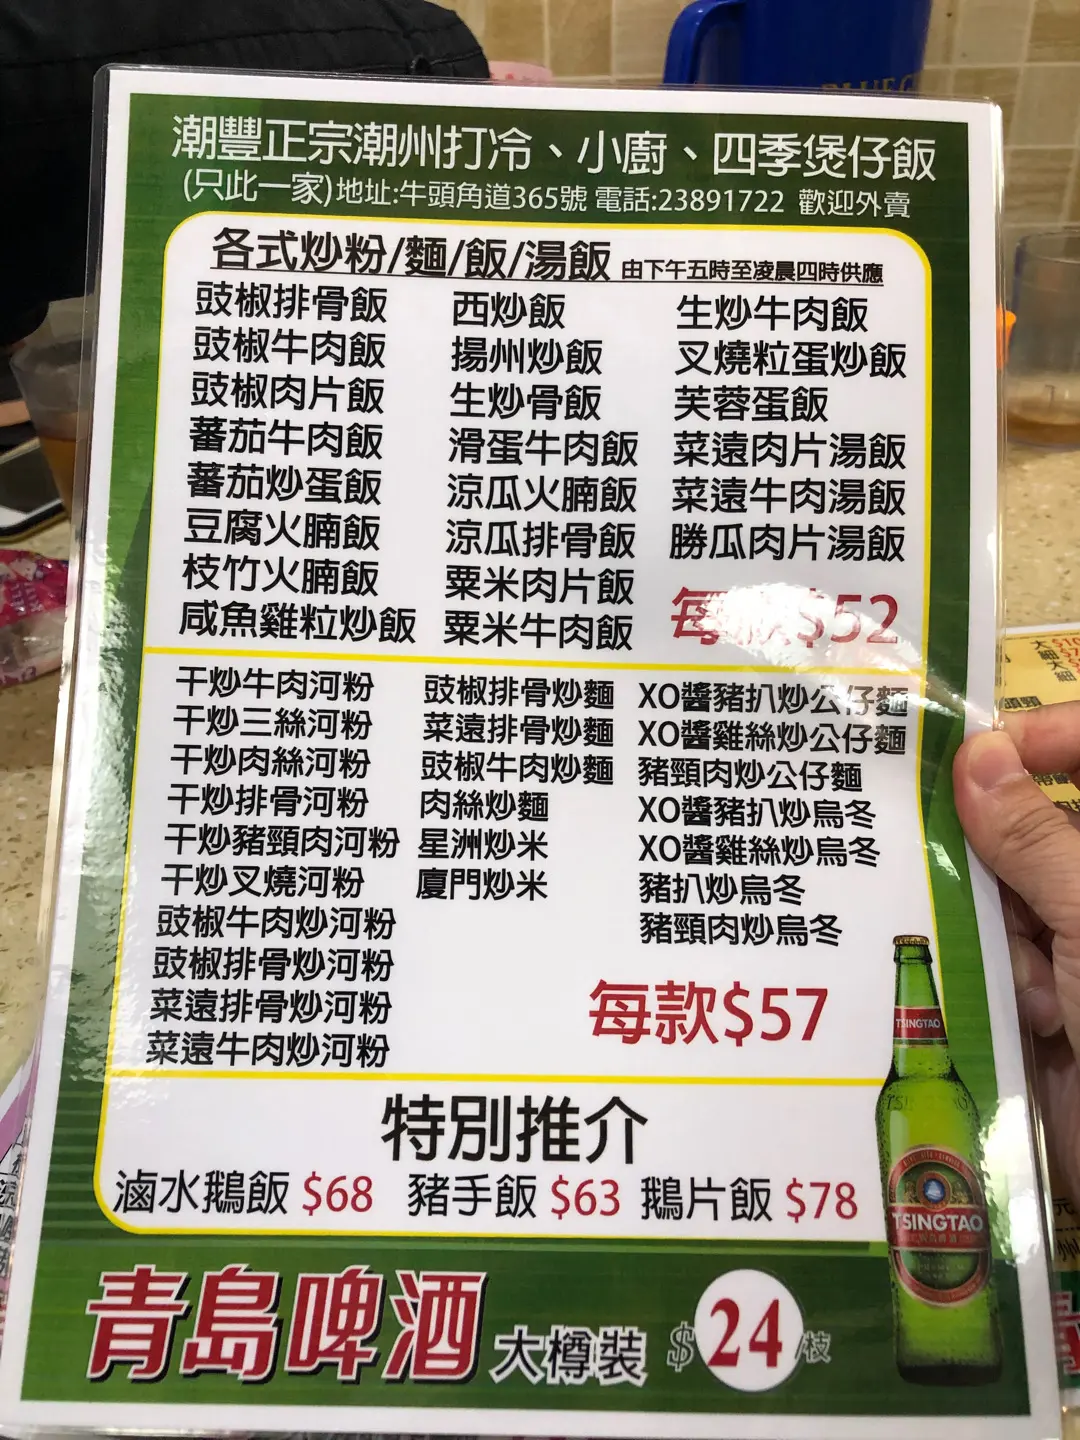 潮豐正宗潮州打冷、小廚、四季煲仔飯
(只此一家)地址:牛頭角道365號 電話:23891722 歡迎外賣
各式炒粉/麵/飯/湯飯 由下午五時至凌晨四時供應
豉椒排骨飯
豉椒牛肉飯
豉椒肉片飯
蕃茄牛肉飯
蕃茄炒蛋飯
豆腐火腩飯
枝竹火腩飯
咸魚雞粒炒飯
西炒飯
揚州炒飯
生炒骨飯
滑蛋牛肉飯
涼瓜火腩飯
涼瓜排骨飯
粟米肉片飯
粟米牛肉飯
生炒牛肉飯
叉燒粒蛋炒飯
芙蓉蛋飯
菜遠肉片湯飯
菜遠牛肉湯飯
勝瓜肉片湯飯
每款$52
干炒牛肉河粉
干炒三絲河粉
干炒肉絲河粉
干炒排骨河粉
干炒豬頸肉河粉
干炒叉燒河粉
豉椒牛肉炒河粉
豉椒排骨炒河粉
菜遠排骨炒河粉
菜遠牛肉炒河粉
豉椒排骨炒麵
菜遠排骨炒麵
豉椒牛肉炒麵
肉絲炒麵
星洲炒米
廈門炒米
XO醬豬扒炒公仔麵
XO醬雞絲炒公仔麵
豬頸肉炒公仔麵
XO醬豬扒炒烏冬
XO醬雞絲炒烏冬
豬扒炒烏冬
豬頸肉炒烏冬
每款$57
特別推介
滷水鵝飯 $68 豬手飯 $63 鵝片飯 $78
青島啤酒 大樽裝 $24/枝
TSINGTAO
TSINGTAO